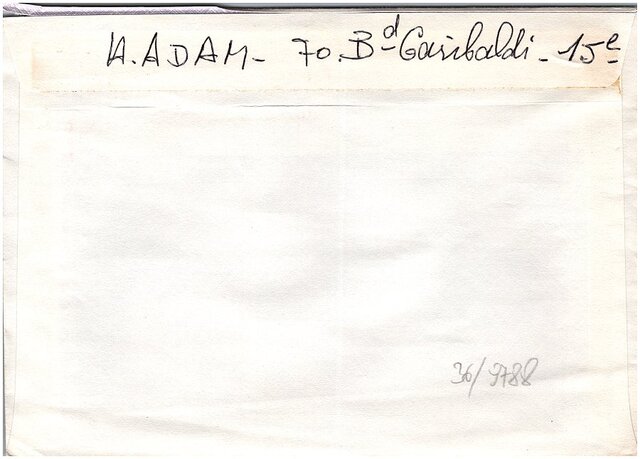 H. ADAM - 70. Bd Garibaldi - 15e
36/9788